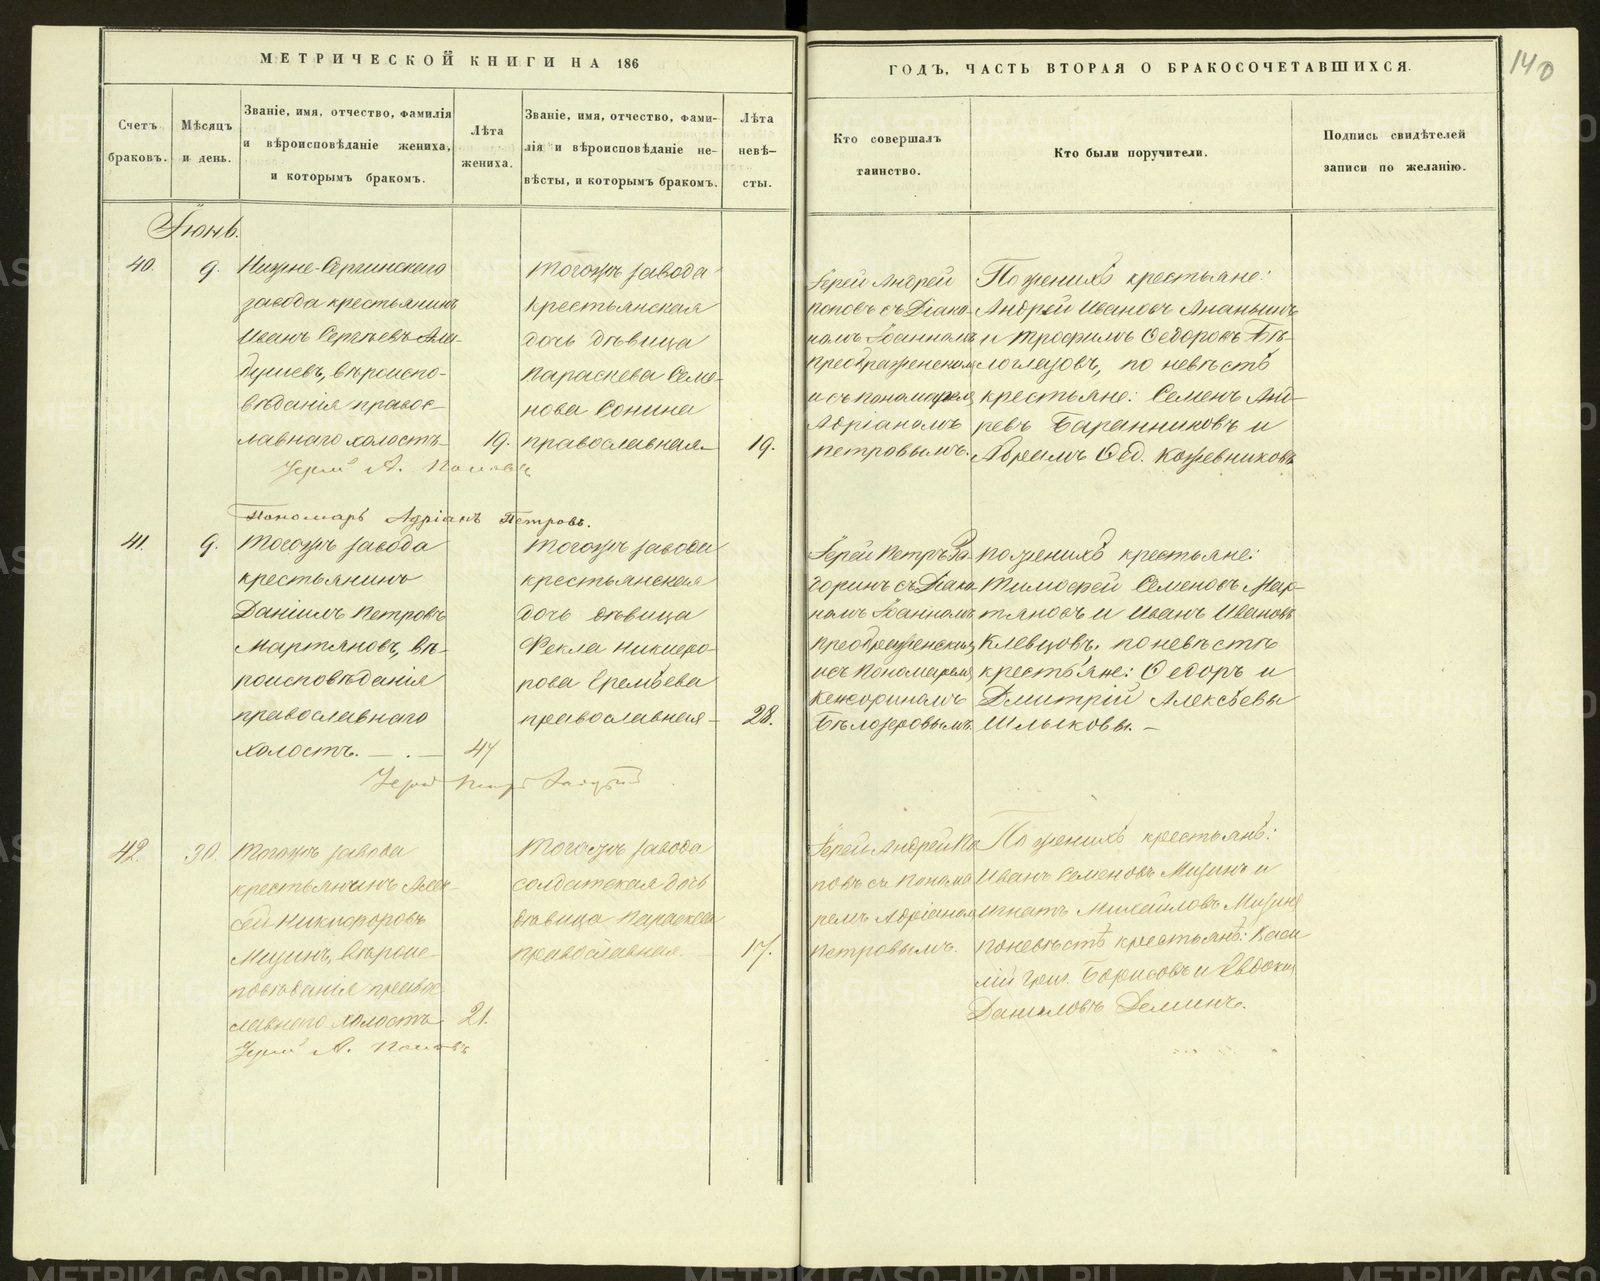 МЕТРИЧЕСКОЙ КНИГИ НА 186
ГОДЪ, ЧАСТЬ ВТОРАЯ О БРАКОСОЧЕТАВШИХСЯ.
140
Счетъ
браковъ.
Мѣсяцъ
и день.
Званіе, имя, отчество, фамилія
и вѣроисповѣданіе жениха,
и которымъ бракомъ.
Лѣта
жениха.
Званіе, имя, отчество, фами-
лія и вѣроисповѣданіе не-
вѣсты, и которымъ бракомъ.
Лѣта
невѣ-
сты.
Кто совершалъ
таинство.
Кто были поручители.
Подпись свидѣтелей
записи по желанію.
Іюнь.
40.
9.
Нижне-Сергинскаго
завода крестьянинъ
Иванъ Сергѣевъ
вѣроиспо-
вѣданія правос-
лавнаго холостъ
19.
Тогожъ завода
крестьянская
дочь дѣвица
Параскева Семе-
нова Сонина
православная
19.
Іерей Андрей
Поповъ съ Діако-
номъ Іоанномъ
Преображенскимъ
и съ пономаремъ
Адріаномъ
Петровымъ.
По женихѣ крестьяне:
Андрей Ивановъ Ананьинъ
и Трофимъ Ѳедоровъ Бѣ-
логлазовъ, по невѣстѣ
крестьяне: Семенъ Анд-
ревъ Баранниковъ и
Абрамъ Ѳед. Кожевниковъ
Іерей А. Поповъ
Пономарь Адріанъ Петровъ.
41.
9.
Тогожъ завода
крестьянинъ
Даніилъ Петровъ
Мартяновъ, вѣ-
роисповѣданія
православнаго
холостъ.
47
Тогожъ завода
крестьянская
дочь дѣвица
Ѳекла Никифо-
рова Еремѣева
православная
28.
Іерей Петръ За-
горинъ съ Діако-
номъ Іоанномъ
Преображенскимъ
и съ Пономаремъ
Кенсориномъ
Бѣлозеровымъ
По женихѣ крестьяне:
Тимоѳей Семеновъ Мар-
тяновъ и Иванъ Ивановъ
Клевцовъ. по невѣстѣ
крестьяне: Ѳедоръ и
Дмитрій Алексѣевы
Шлыковы.
Іерей Петръ
42.
30.
Тогожъ завода
крестьянинъ Алек-
сѣй Никифоровъ
Мизинъ, вѣроис-
повѣданія правос-
лавнаго холостъ
21.
Тогожъ завода
солдатская дочь
дѣвица Параскева
православная
17.
Іерей Андрей По-
повъ съ Понома-
ремъ Адріаномъ
Петровымъ.
По женихѣ крестьянѣ:
Иванъ Семеновъ Мизинъ и
Игнатъ Михайловъ Мизинъ
по невѣстѣ крестьянѣ: Васи-
лій Григ. Борисовъ и Евдоким
Даниловъ Деминъ.
Іерей А. Поповъ